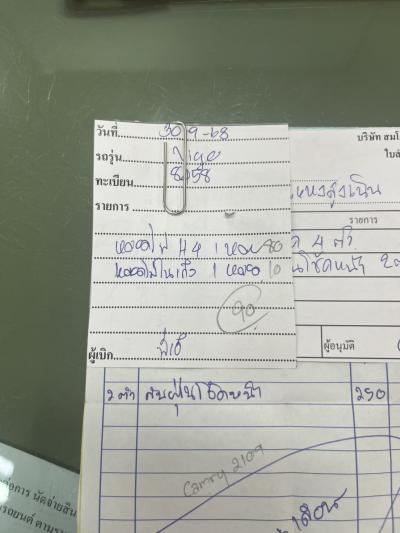 วันที่ 30-9-68
รถรุ่น Vigo
ทะเบียน 8058
รายการ
หลอดไฟ H4 1 หลอด 80
หลอดไฟในเก๋ง 1 หลอด 10
90
ผู้เบิก
บริษัท สมโ
ใบส
สูงเนิน
รายการ
4 ตัว
นโช๊คหน้า 2ต
ผู้อนุมัติ
2 ตัว กันฝุ่นโช๊คหน้า 250
Camry 2109
เดือน
ต่อการ นัดจ่ายสิน